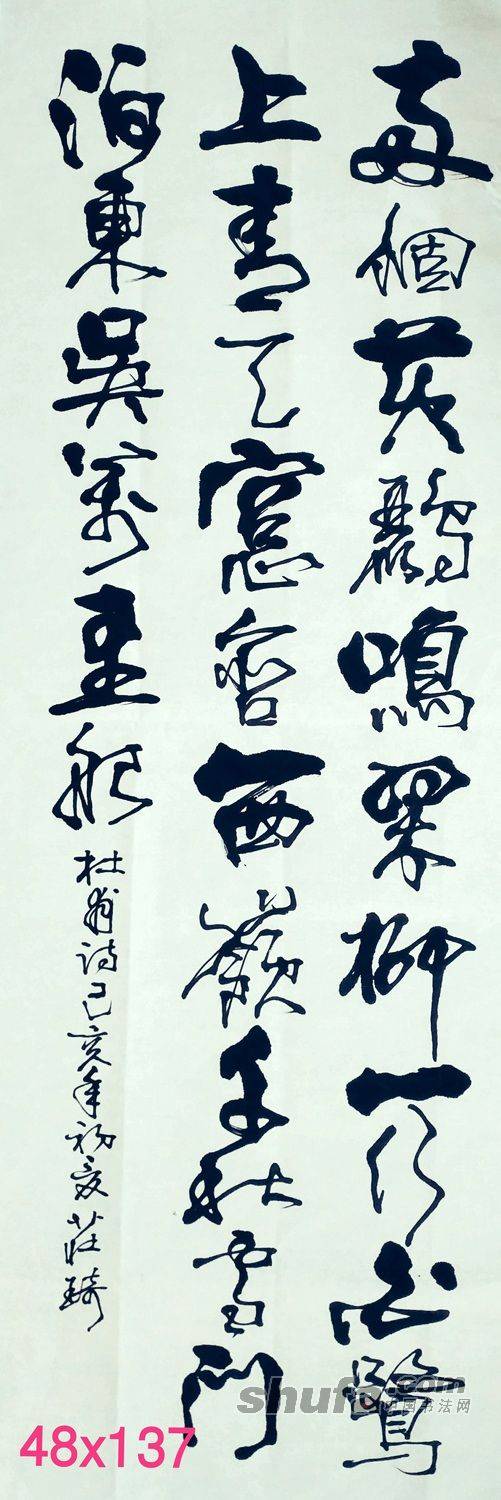 两個黃鸝鳴翠柳一行白鷺
上青天窓含西嶺千秋雪門
泊東吳萬里船
杜甫詩己亥年初夏莊琦
shufa.com
中国书法网
48x137